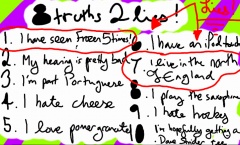 8 truths 2 lies!
1. I have seen frozen 5 times!
2. My hearing is pretty bad
3. I'm part Portuguese
4. I hate cheese
5. I love pomegranate
6 I have an ipad
7 i live in the north of England
8 I play the saxophone
9 I hate hockey
I'm hopefully getting a Dave Strider tee